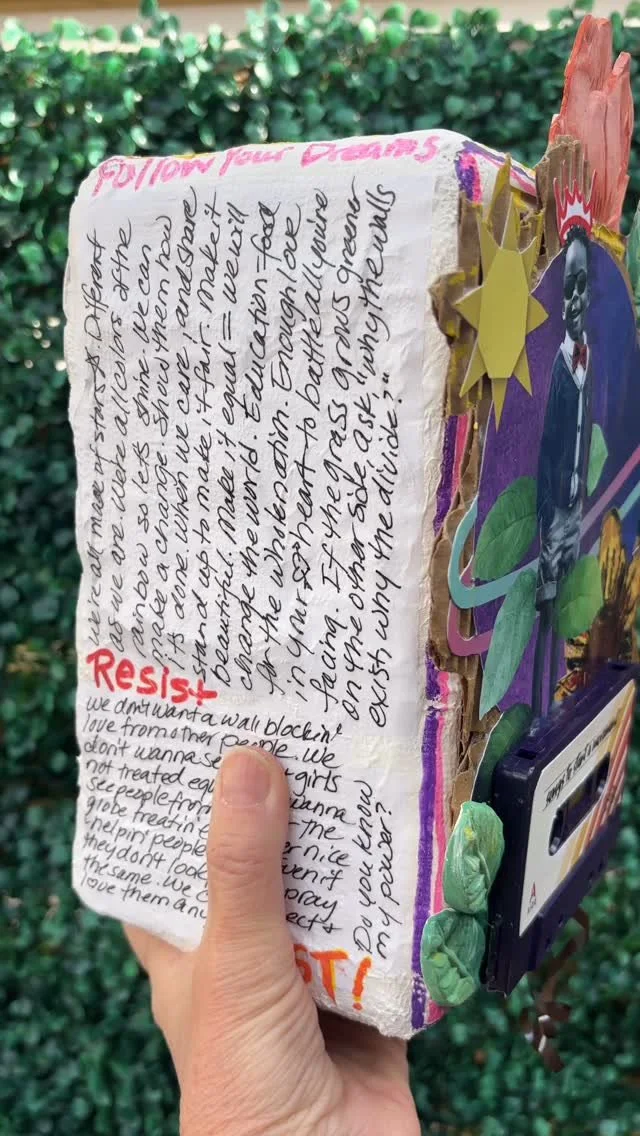 Follow Your Dreams
we're all made of stars as Different
as we are. We're all colors of the
rainbow so lets shine. We can
make a change show them how
it's done. When we care, and share
stand up to make it fair. Make it
beautiful. Make it equal = we will
change the world. Education-food
for the whole nation. Enough love
in your heart to battle all you're
facing. If the grass grows greener
on the other side ask, "why the walls
exist why the divide?"
Resist
we don't want a wall blockin'
love from other people. We
don't wanna se girls
not treated eq wanna
see people from the
globe treatin' e er nice
helpin' people even if
they don't look
the same. we c pray
love them any ect &
Do you know
my power?
ST!
A